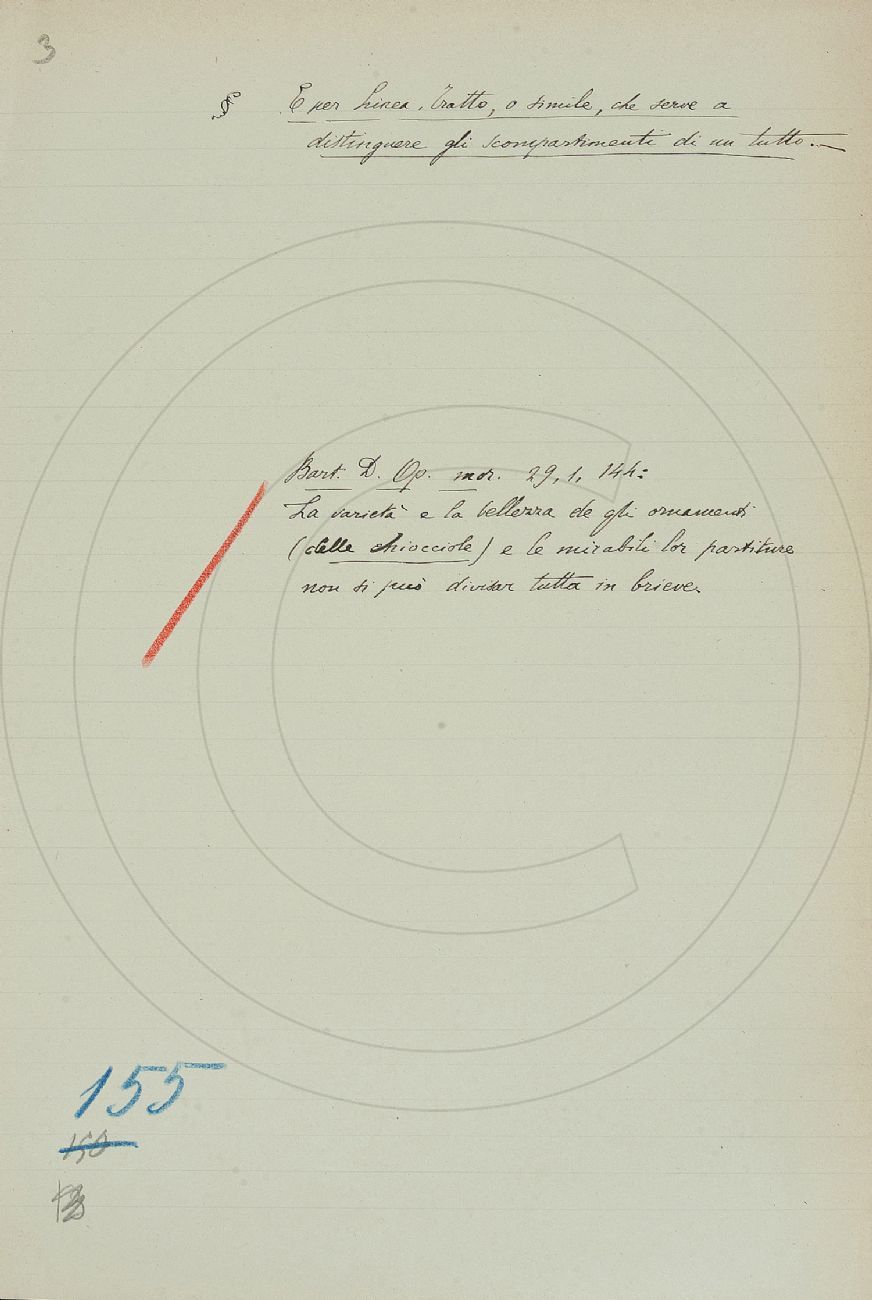 3
§ E per Linea, Tratto, o simile, che serve a
distinguere gli scompartimenti di un tutto. —
Bart. D. Op. mor. 29, 1, 144:
La varietà e la bellezza de gli ornamenti
(delle chiocciole) e le mirabili lor partiture
non si può divisar tutta in brieve.
155
150